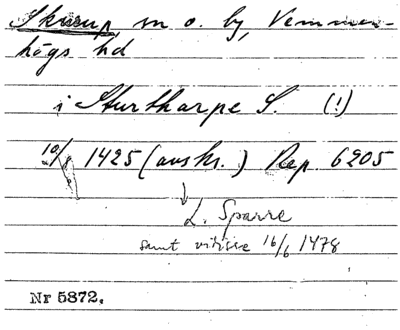 Skurup sn o. by, Vemmen-
högs hd
i Sturtharpe S. (!)
10/1 1425 (avskr.) Rep. 6205
↓
L. Sparre
samt vitisse 16/6 1478
Nr 5872.